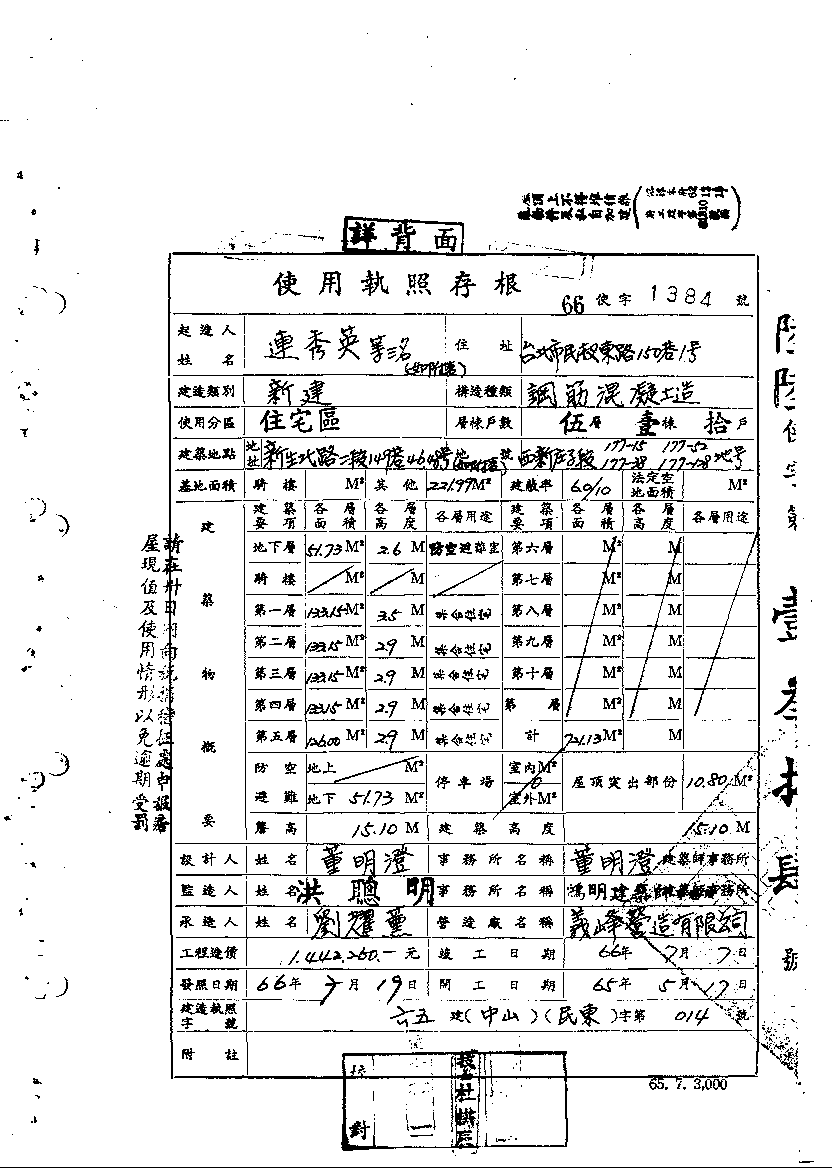 詳背面
使用執照存根
66 使字 1384 號
起造人姓名 連秀英等三名 住址 台北市民权東路150巷1号
建造類別 新建 構造種類 鋼筋混凝土造
使用分區 住宅區 層棟戶數 伍層 壹棟 拾戶
建築地點 地址 新生北路二段149巷 號 177-15 177-52
177-38 177-128 地号
基地面積 騎樓 M² 其他 221.97M² 建蔽率 6.0/10 法定空地面積 M²
建築物概要
建築要項 各層面積 各層高度 各層用途 建築要項 各層面積 各層高度 各層用途
地下層 51.73M² 2.6M 防空避難室 第六層 M² M
騎樓 M² M 第七層 M² M
第一層 133.15M² 3.5M 集合住宅 第八層 M² M
第二層 133.15M² 2.9M 集合住宅 第九層 M² M
第三層 133.15M² 2.9M 集合住宅 第十層 M² M
第四層 133.15M² 2.9M 集合住宅 第 層 M² M
第五層 126.00M² 2.9M 集合住宅 計 721.13M² M
防空避難 地上 M² 停車場 室內M² 0 屋頂突出部份 10.80M²
地下 51.73M² 室外M²
簷高 15.10M 建築高度 15.10M
設計人 姓名 董明澄 事務所名稱 董明澄建築師事務所
監造人 姓名 洪聰明 事務所名稱 鴻明建築師事務所
承造人 姓名 劉耀薰 營造廠名稱 義峰營造有限公司
工程造價 1,442,260.-元 竣工日期 66年7月7日
發照日期 66年7月19日 開工日期 65年5月17日
建造執照字號 六五建(中山)(民東)字第014號
附註
65. 7. 3,000
校對
請在卅日內向稅捐稽征處申報房
屋現值及使用情形以免逾期受罰
陸陸使字第壹叁捌肆號